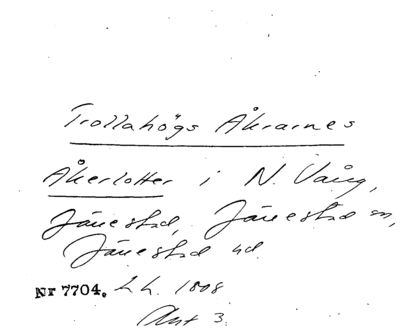 Trollahögs Åkrarnes
Åkerlotter i N. Vång,
Järrestad, Järrestad sn,
Järrestad hd.
Nr 7704. L.L. 1808
Akt 3.